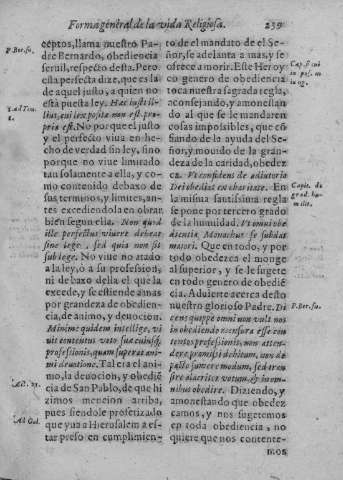 Forma general de la vida Religiosa. 239
P. Ber. su.
1. ad Tim. 1.
Act. 21.
Ad Gal.
ceptos, llama nuestro Pa-
dre Bernardo, obediencia
seruil, respecto desta. Pero
esta perfecta dize, que es la
de aquel justo, a quien no
està puesta ley. Hac iusti il-
lius, cui lex posita non est. pro-
pria est. No porque el justo
y el perfecto viua en he-
cho de verdad sin ley, sino
porque no viue limitado
tan solamente a ella, y co-
mo contenido debaxo de
sus terminos, y limites, an-
tes excediendola en obrar
bien segun ella. Non quod
ille perfectus viuere debeat
sine lege, sed quia non sit
sub lege. No viue no atado
a la ley, ò a su profession,
ni debaxo della el que la
excede, y se estiende a mas
por grandeza de obedien-
cia, de animo, y deuocion.
Minime quidem intellige, vi-
uit contentus voto sua cuiusq;
professionis, quam superat ani-
mi deuotione. Tal era el ani-
mo, la deuocion, y obediē
cia de San Pablo, de que hi
zimos mencion arriba,
pues siendole profetizado
que yua a Hierusalem a es-
tar preso en cumplimien-
to del mandato de el Se-
ñor, se adelanta a mas, y se
ofrece a morir. Este Heroy
co genero de obediencia
toca nuestra sagrada regla,
aconsejando, y amonestan
do al que se le mandaren
cosas impossibles, que cō-
fiando de la ayuda del Se-
ñor, y mouido de la gran-
deza de la caridad, obedez
ca. Vt confidens de adiutorio
Dei obediat ex charitate. En
la misma santissima regla
se pone por tercero grado
de la humildad. Vt omni obe
dientia, Monachus se subdat
maiori. Que en todo, y por
todo obedezca el monge
al superior, y se le sugete
en todo genero de obediē
cia. Aduierte acerca desto
nuestro glorioso Padre. Di
cens quippe omni non vult nos
in obediendo mensura esse con
tentos professionis, non atten-
dere promissi debitum, non de
pacto sumere modum, sed tran
sire alacriter votum, & in om-
nibus obedire. Diziendo, y
amonestando que obedez
camos, y nos sugetemos
en toda obediencia, no
quiere que nos contente-
mos
Cap. si cui
Capit. de
grad. hu-
milit.
P. Ber. su.